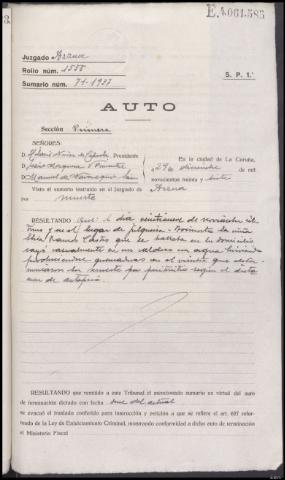 E.4.061.585
Juzgado Arzua
Rollo núm. 1558
Sumario núm. 71-1937
S. P. 1.ª
AUTO
Sección Primera
SEÑORES:
D. Presidente
D.
D. Manuel de
En la ciudad de La Coruña,
a 29 de diciembre de mil
novecientos treinta y siete
Visto el sumario instruido en el Juzgado de Arzua
por muerte
RESULTANDO Que el dia veintiuno de noviembre
y en el lugar de la niña
Ramos Castro que se hallaba en su domicilio
cayó casualmente en un caldero con agua hirviendo
produciendose quemaduras en el vientre que deter-
minaron su muerte por peritonitis segun el dicta-
men de autopsia.
RESULTANDO que remitido a este Tribunal el mencionado sumario en virtud del auto
de terminación dictado con fecha once del actual
se evacuó el traslado conferido para instrucción y petición a que se refiere el art. 627 refor-
mado de la Ley de Enjuiciamiento Criminal, mostrando conformidad a dicho auto de terminación
el Ministerio Fiscal